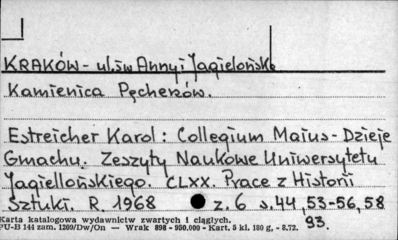 KRAKÓW - ul. św Anny i Jagielońska
Kamienica Pęcherzów.
Estreicher Karol: Collegium Maius - Dzieje
Gmachu. Zeszyty Naukowe Uniwersytetu
Jagiellońskiego. CLXX. Prace z Historii
Sztuki. R. 1968 z. 6 s. 44, 53-56, 58
93.
Karta katalogowa wydawnictw zwartych i ciągłych.
PU-B 144 zam. 1209/Dw/On — Wrak 898 - 950.000 - Kart. 5 kl. 180 g. - 8.72.